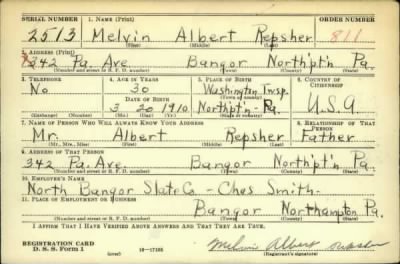 SERIAL NUMBER 1. NAME (Print) ORDER NUMBER
2513 Melvin Albert Repsher 811
(First) (Middle) (Last)
2. ADDRESS (Print)
342 Pa. Ave. Bangor North'pt'n Pa.
(Number and street or R. F. D. number) (Town) (County) (State)
3. TELEPHONE 4. AGE IN YEARS 5. PLACE OF BIRTH 6. COUNTRY OF CITIZENSHIP
No 30 Washington Twsp.
DATE OF BIRTH (Town or county)
3 20 1910 North'pt'n- Pa. U.S.A
(Exchange) (Number) (Mo.) (Day) (Yr.) (State or country)
7. NAME OF PERSON WHO WILL ALWAYS KNOW YOUR ADDRESS 8. RELATIONSHIP OF THAT PERSON
Mr. Albert Repsher Father
(Mr., Mrs., Miss) (First) (Middle) (Last)
9. ADDRESS OF THAT PERSON
342 Pa. Ave. Bangor North'pt'n Pa.
(Number and street or R. F. D. number) (Town) (County) (State)
10. EMPLOYER'S NAME
North Bangor Slate Co - Chas Smith-
11. PLACE OF EMPLOYMENT OR BUSINESS
Bangor Northampton Pa.
(Number and street or R. F. D. number) (Town) (County) (State)
I AFFIRM THAT I HAVE VERIFIED ABOVE ANSWERS AND THAT THEY ARE TRUE.
REGISTRATION CARD
D. S. S. Form 1 (over) 16-17105 Melvin Albert Repsher
(Registrant's signature)